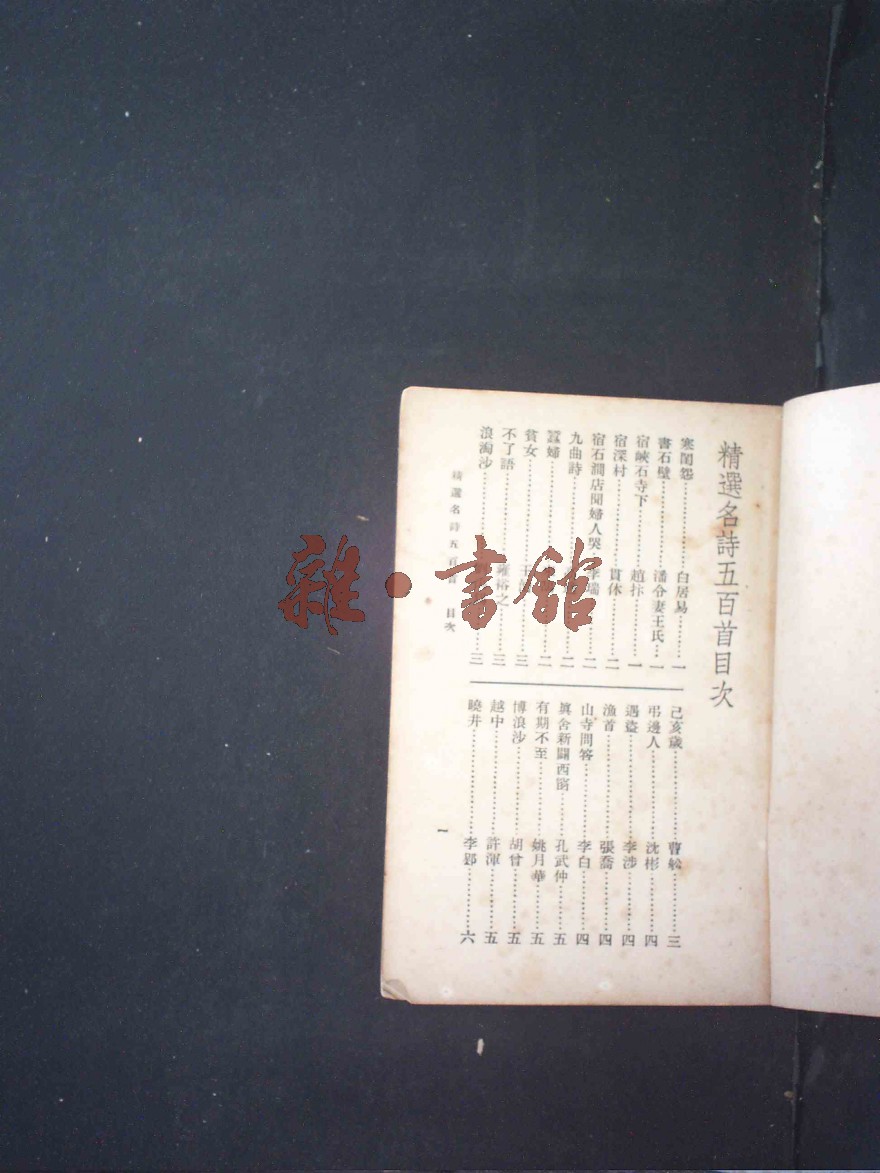 精選名詩五百首目次
寒閨怨………白居易…一
書石壁………潘令妻王氏…一
宿峽石寺下………趙抃…一
宿深村………貫休…二
宿石澗店聞婦人哭…李端…二
九曲詩………二
蠶婦………二
貧女………三
不了語………雍裕之…三
浪淘沙………三
己亥歲………曹松…三
弔邊人………沈彬…四
遇盜………李涉…四
漁首………張喬…四
山寺問答………李白…四
眞舍新闢西窗………孔武仲…五
有期不至………姚月華…五
博浪沙………胡曾…五
越中………許渾…五
曉井………李郢…六
精選名詩五百首 目次
一
雜·書館